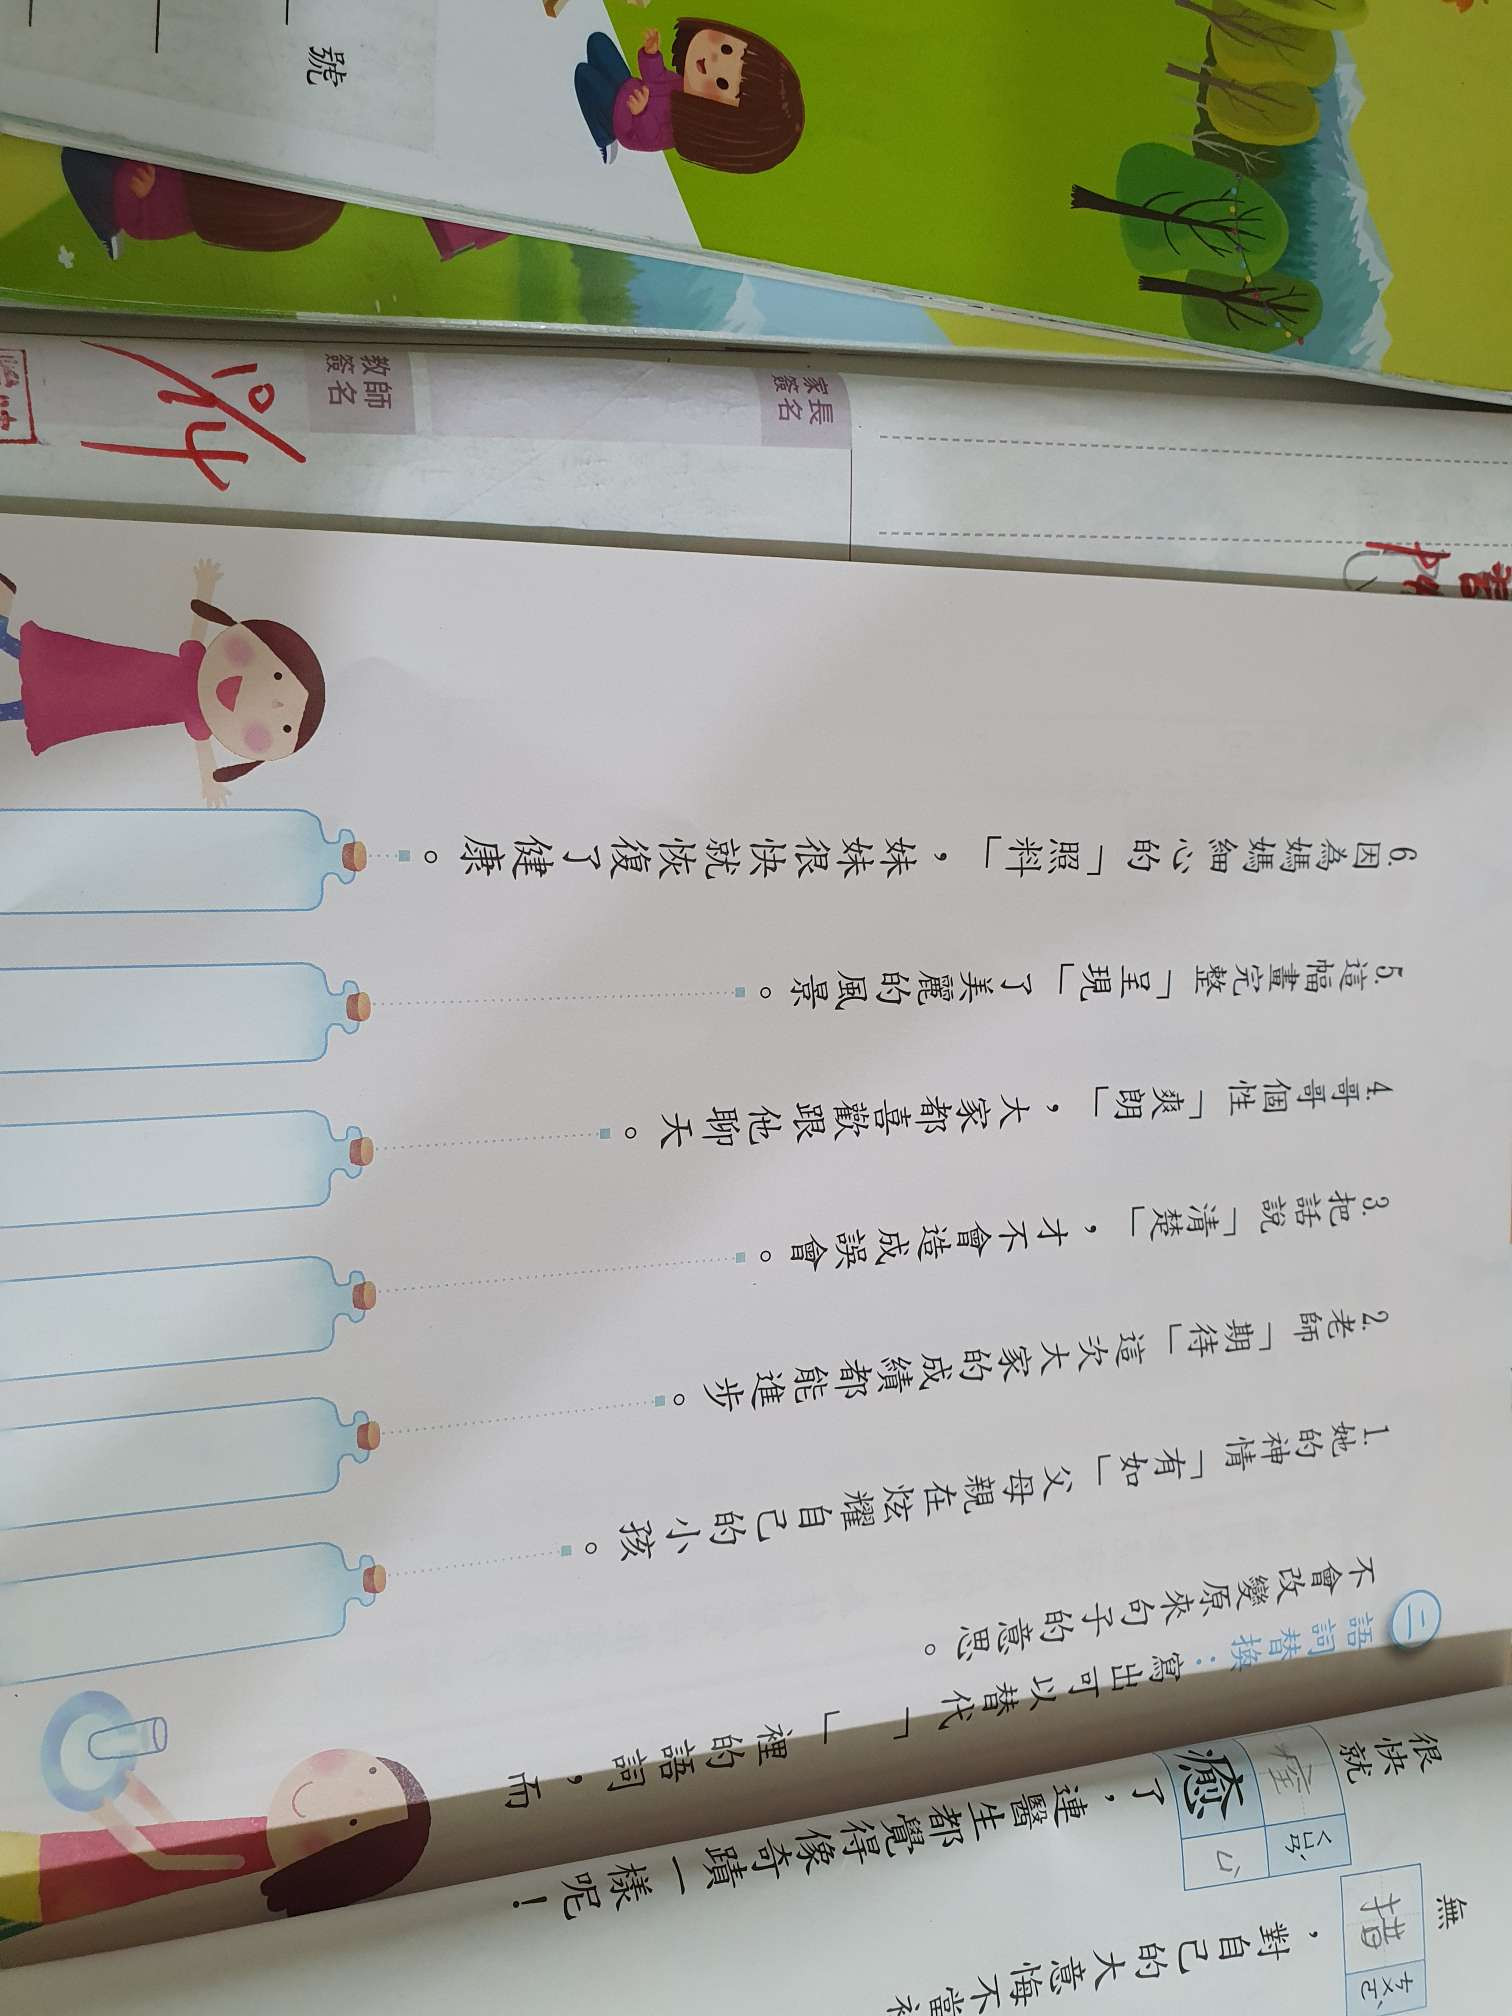 號
教師
簽名
10/4
家長
簽名
二
語詞替換：寫出可以替代「　」裡的語詞，而
不會改變原來句子的意思。
1.她的神情「有如」父母親在炫耀自己的小孩。
2.老師「期待」這次大家的成績都能進步。
3.把話說「清楚」，才不會造成誤會。
4.哥哥個性「爽朗」，大家都喜歡跟他聊天。
5.這幅畫完整「呈現」了美麗的風景。
6.因為媽媽細心的「照料」，妹妹很快就恢復了健康。
無
措
，對自己的大意悔不當
很快就
痊
癒
了，連醫生都覺得像奇蹟一樣呢！